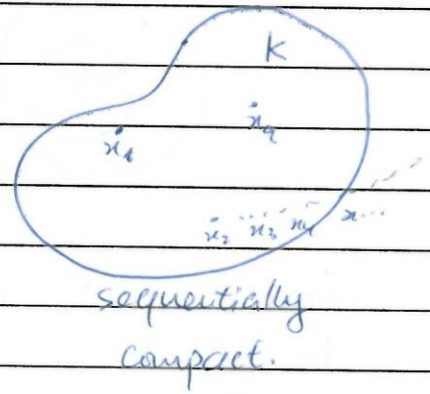 K
x₁
x₂ x₃ x₄ x...
sequentially
compact.